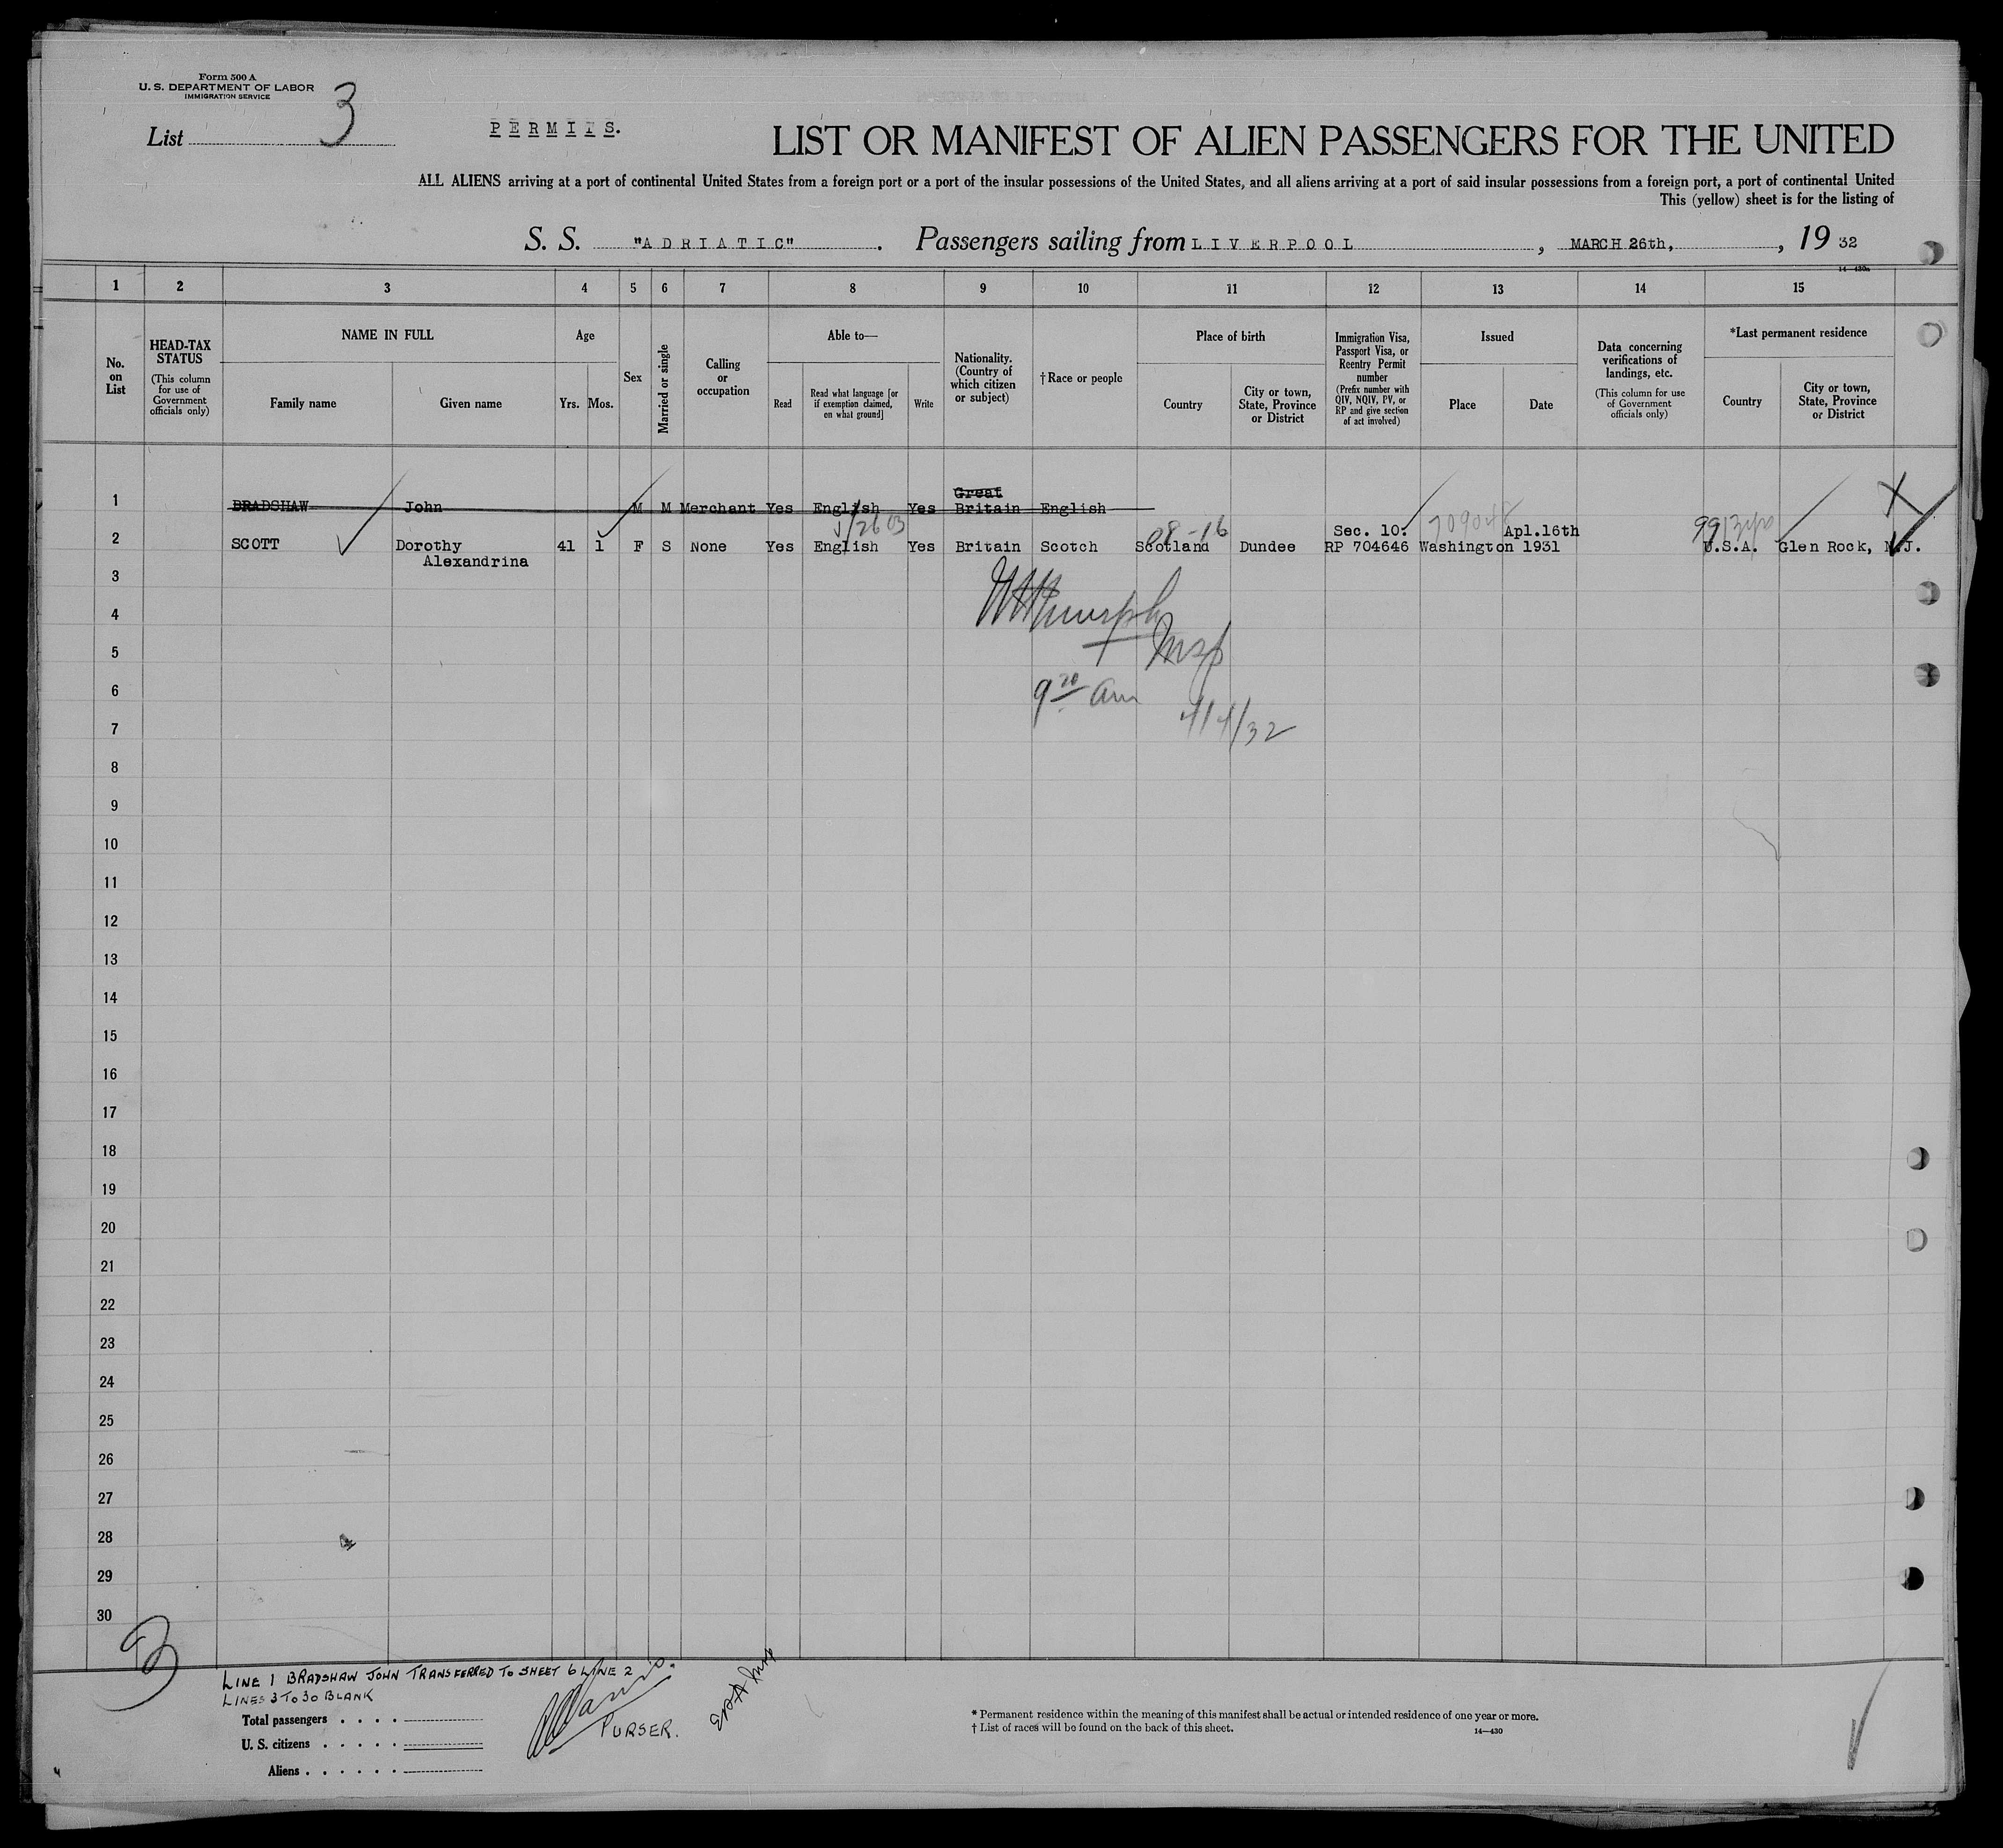 Form 500 A
U. S. DEPARTMENT OF LABOR
IMMIGRATION SERVICE
List 3
PERMITS.
LIST OR MANIFEST OF ALIEN PASSENGERS FOR THE UNITED
ALL ALIENS arriving at a port of continental United States from a foreign port or a port of the insular possessions of the United States, and all aliens arriving at a port of said insular possessions from a foreign port, a port of continental United
This (yellow) sheet is for the listing of
S. S. "ADRIATIC". Passengers sailing from LIVERPOOL, MARCH 26th, , 19 32
14—430a
1 2 3 4 5 6 7 8 9 10 11 12 13 14 15
No. on List
HEAD-TAX STATUS
(This column for use of Government officials only)
NAME IN FULL
Family name
Given name
Age
Yrs.
Mos.
Sex
Married or single
Calling or occupation
Able to—
Read
Read what language [or if exemption claimed, on what ground]
Write
Nationality. (Country of which citizen or subject)
†Race or people
Place of birth
Country
City or town, State, Province or District
Immigration Visa, Passport Visa, or Reentry Permit number
(Prefix number with QIV, NQIV, PV, or RP and give section of act involved)
Issued
Place
Date
Data concerning verifications of landings, etc.
(This column for use of Government officials only)
*Last permanent residence
Country
City or town, State, Province or District
Great
1 BRADSHAW John M M Merchant Yes English Yes Britain English
Sec. 10. Apl.16th
2 SCOTT Dorothy 41 1 F S None Yes English Yes Britain Scotch Scotland Dundee RP 704646 Washington 1931 U.S.A. Glen Rock, N.J.
Alexandrina
3
4
5
6
9 20 am
4/4/32
7
8
9
10
11
12
13
14
15
16
17
18
19
20
21
22
23
24
25
26
27
28
29
30
3
LINE 1 BRADSHAW JOHN TRANSFERRED TO SHEET 6 LINE 2
LINES 3 TO 30 BLANK
Total passengers
U. S. citizens
Aliens
PURSER.
* Permanent residence within the meaning of this manifest shall be actual or intended residence of one year or more.
† List of races will be found on the back of this sheet.
14—430